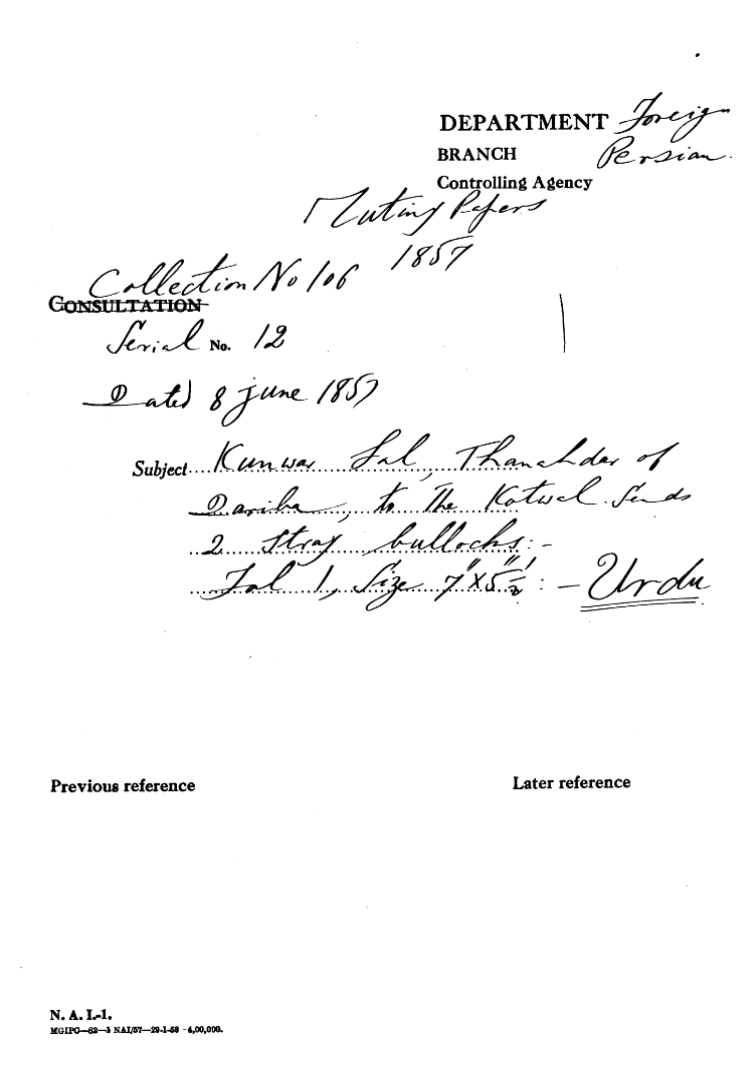 DEPARTMENT Foreign
BRANCH Persian.
Controlling Agency
Mutiny Papers
1857
Collection No 106
CONSULTATION
Serial No. 12
Dated 8 June 1857
Subject Kunwar Lal, Thanahdar of
Dariba, to the Kotwal. Sends
2 stray bullocks:-
Fol 1, Size 7"x5½":- Urdu
Previous reference
Later reference
N. A. I.-1.
MGIPC—S2—3 NAI/57—29-1-58 -4,00,000.